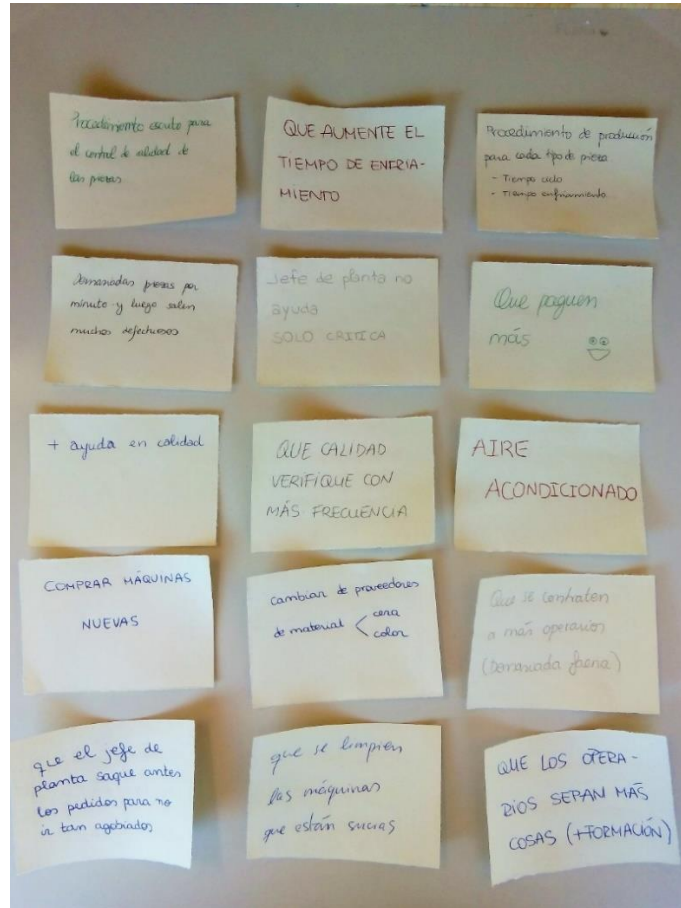 Procedimiento escrito para
el control de calidad de
las piezas
QUE AUMENTE EL
TIEMPO DE ENFRIA-
MIENTO
Procedimiento de producción
para cada tipo de pieza
- Tiempo ciclo
- Tiempo enfriamiento
Demasiadas piezas por
minuto y luego salen
muchos defectuosos
Jefe de planta no
ayuda
SOLO CRITICA
Que paguen
más
+ ayuda en calidad
QUE CALIDAD
VERIFIQUE CON
MÁS FRECUENCIA
AIRE
ACONDICIONADO
COMPRAR MÁQUINAS
NUEVAS
cambiar de proveedores
de material < cera
color
Que se contraten
a más operarios
(Demasiada faena)
que el jefe de
planta saque antes
los pedidos para no
ir tan agobiados
que se limpien
las máquinas
que están sucias
QUE LOS OPERA-
RIOS SEPAN MÁS
COSAS (+FORMACIÓN)